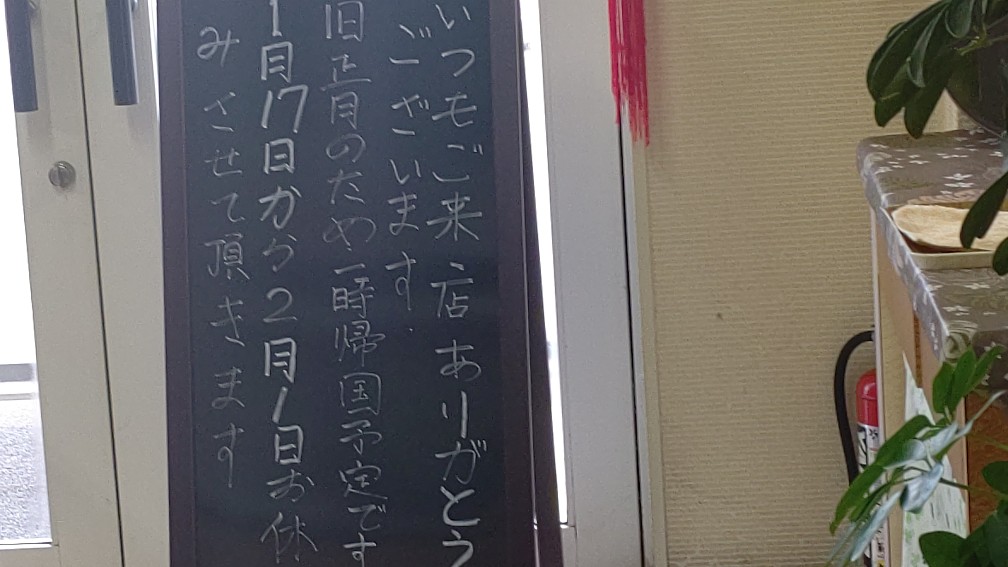 いつもご来店ありがとう
ございます.
旧正月のため一時帰国予定です
1月17日から2月1日お休
みさせて頂きます